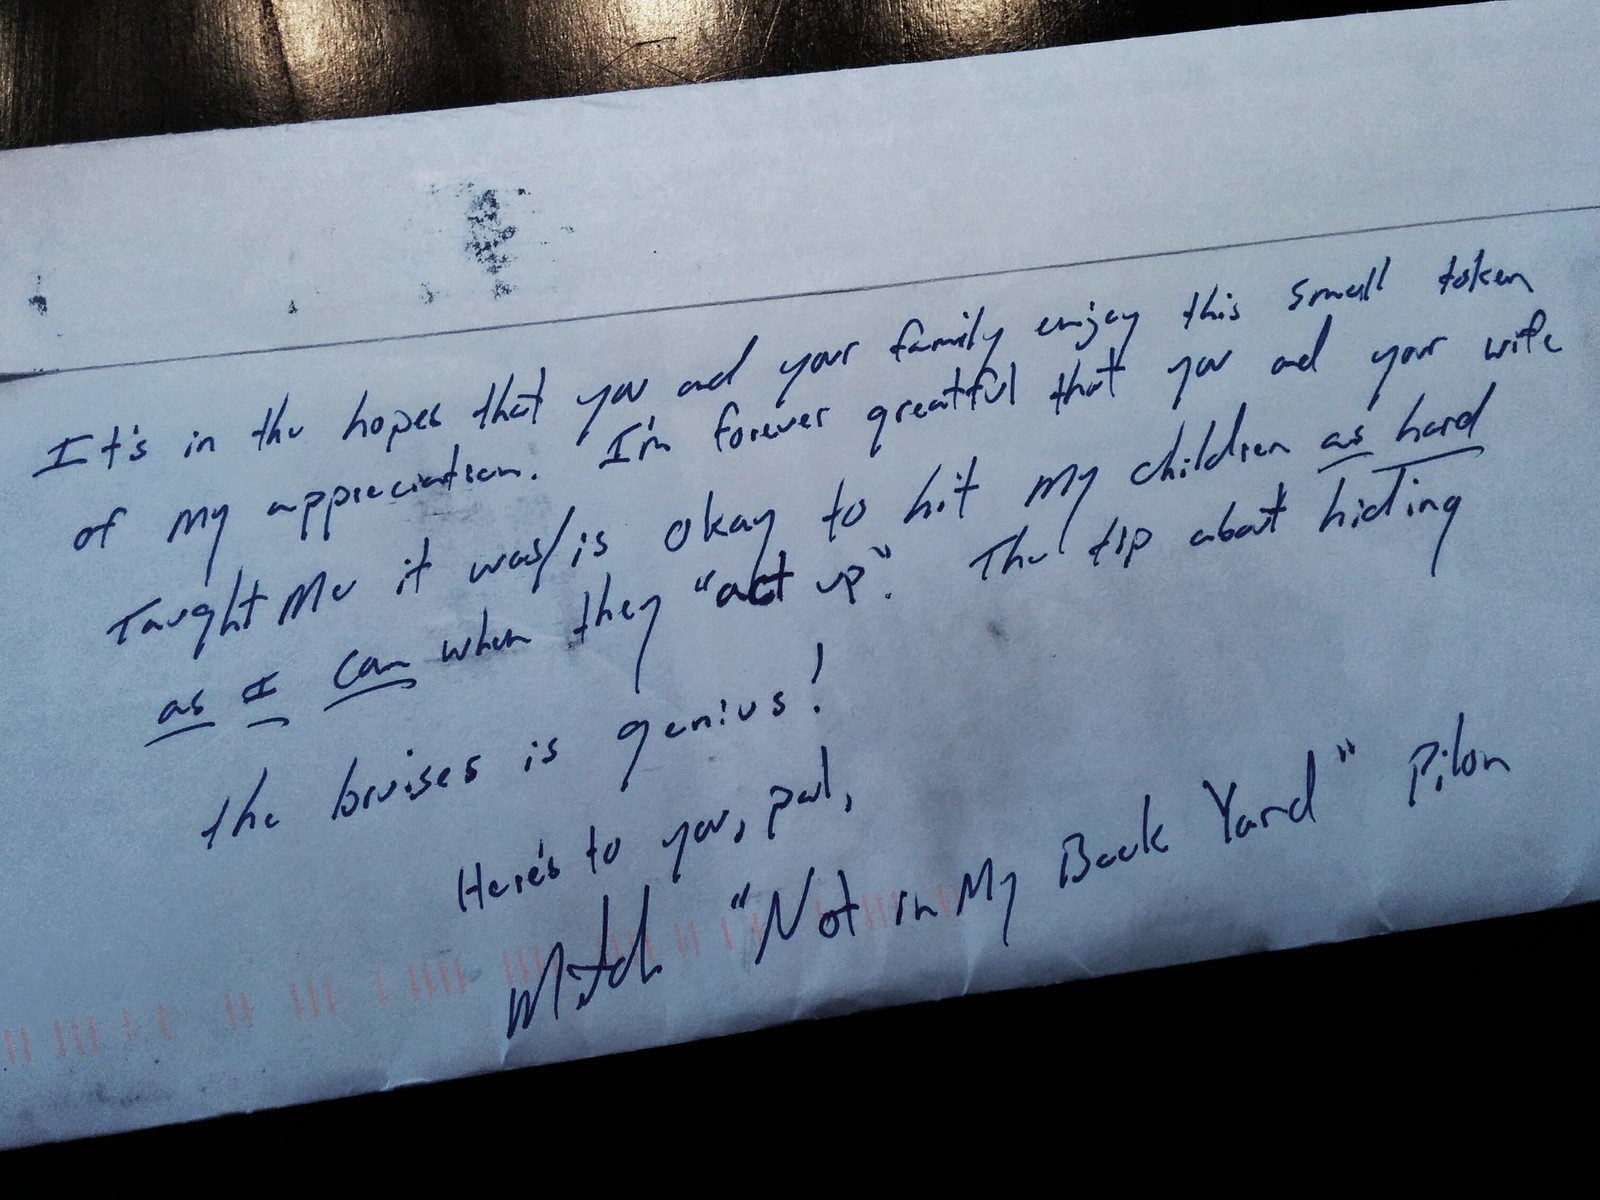 It's in the hopes that you and your family enjoy this small token
of my appreciation. I'm forever greatful that you and your wife
Taught Me it was/is okay to hit my children as hard
as I can when they "act up". The tip about hiding
the bruises is genius!
Here's to you, pal,
Mitch "Not in My Back Yard" Pilon